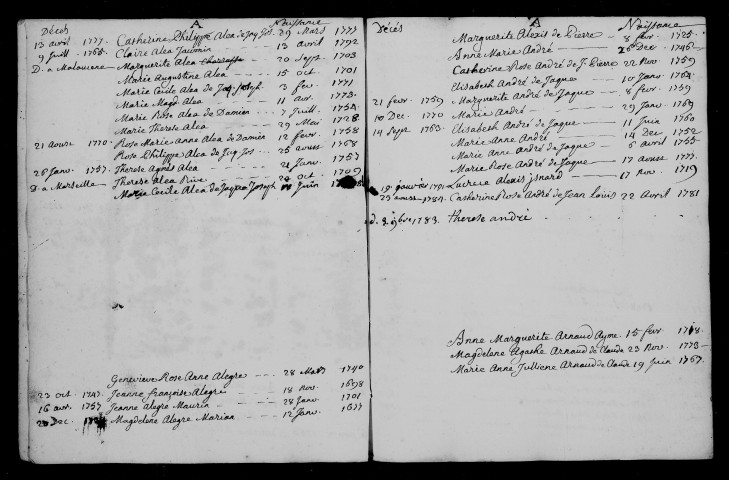 A
Décès Naissance
13 avril 1777. Catherine Philippe Alea de Jaq Jos. 29 Mars 1777
9 juill. 1768. Claire Alea Jacomin 13 avril 1792
D. a Malaucene Marguerite Alea 20 Sept. 1703
Marie Augustine Alea 15 oct. 1701
Marie Cecile Alea de Jaq. joseph. 3 fev. 1771
Marie Magd. Alea 11 avr. 1773.
Marie Rose Alea de Damien 7 juill. 1754
Marie Therese Alea 29 Mai 1728
21 aoust 1770. Rose Marie Anne Alea de Damien 12 fevr. 1758
Rose Philippe Alea de Jaq Jos 25 aoust 1768
26 Janv. 1757. Therese Agnes Alea 21 Janv. 1757
D. a Marseille Therese Alea Rive 20 oct. 1709
Marie Cecile Alea de Jaques Joseph Juin
Genevieve Rose Anne Alegre 28 Mars 1740
23 oct. 1747. Jeanne françoise Alegre 18 nov. 1698
16 avr. 1757 Jeanne Alegre Maurin 28 Janv. 1701
Dec. Magdelene Alegre Marian 12 Janv. 1677
A
Décés Naissance
Marguerite Alexis de Pierre 8 fevr. 1725.
Anne Marie André 26 Dec 1746
Catherine Rose André de J. Pierre 22 Nov. 1759
Elisabeth André de Jaque 10 Janv. 1764.
21 fevr. 1759 Marguerite André de Jaque 8 fevr. 1759
10 Dec. 1770 Marie André 29 Janv. 1769
14 Sept. 1763. Elisabeth André de Jaque 11 Juin 1760
Marie Anne André 14 Dec. 1752
Marie Anne André de Jaque 6 avril 1755
Marie Rose André de Jaque 17 aoust 1777.
19 janvier 1791 Lucrece Alexis jsnard 17 Nov. 1719
23 aoust 1784. Catherine Rose André de Jean Louis 22 Avril 1781
d. 2 9bre 1783. therese andré
Anne Marguerite Arnaud Ayme 15 fevr.
Magdelene Agathe Arnaud de Claude 23 Nov. 1773
Marie Anne Jullienne Arnaud de Claude 19 Juin 1767.